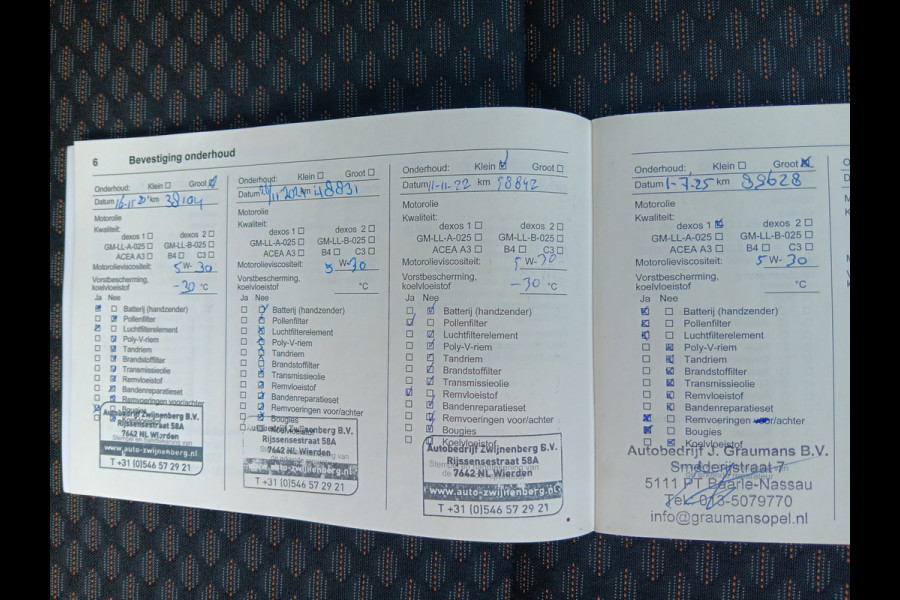 6 Bevestiging onderhoud
Onderhoud: Klein Groot
Datum 16-11-20 km 38104
Motorolie
Kwaliteit:
dexos 1 dexos 2
GM-LL-A-025 GM-LL-B-025
ACEA A3 B4 C3
Motorolieviscositeit:
5 W-30
Vorstbescherming,
koelvloeistof -30 °C
Ja Nee
Batterij (handzender)
Pollenfilter
Luchtfilterelement
Poly-V-riem
Tandriem
Brandstoffilter
Transmissieolie
Remvloeistof
Bandenreparatieset
Remvoeringen voor/achter
Bougies
Autobedrijf Zwijnenberg B.V.
Rijssensestraat 58A
7642 NL Wierden
www.auto-zwijnenberg.nl
T +31 (0)546 57 29 21
Onderhoud: Klein Groot
Datum 11 2021 km 48831
Motorolie
Kwaliteit:
dexos 1 dexos 2
GM-LL-A-025 GM-LL-B-025
ACEA A3 B4 C3
Motorolieviscositeit:
5 W-30
Vorstbescherming,
koelvloeistof °C
Ja Nee
Batterij (handzender)
Pollenfilter
Luchtfilterelement
Poly-V-riem
Tandriem
Brandstoffilter
Transmissieolie
Remvloeistof
Bandenreparatieset
Remvoeringen voor/achter
Bougies
Autobedrijf Zwijnenberg B.V.
Rijssensestraat 58A
7642 NL Wierden
www.auto-zwijnenberg.nl
T +31 (0)546 57 29 21
Onderhoud: Klein Groot
Datum 11-11-22 km 58842
Motorolie
Kwaliteit:
dexos 1 dexos 2
GM-LL-A-025 GM-LL-B-025
ACEA A3 B4 C3
Motorolieviscositeit:
5 W-30
Vorstbescherming,
koelvloeistof -30 °C
Ja Nee
Batterij (handzender)
Pollenfilter
Luchtfilterelement
Poly-V-riem
Tandriem
Brandstoffilter
Transmissieolie
Remvloeistof
Bandenreparatieset
Remvoeringen voor/achter
Bougies
Koelvloeistof
Autobedrijf Zwijnenberg B.V.
Rijssensestraat 58A
7642 NL Wierden
www.auto-zwijnenberg.nl
T +31 (0)546 57 29 21
Onderhoud: Klein Groot
Datum 1-7-25 km 89628
Motorolie
Kwaliteit:
dexos 1 dexos 2
GM-LL-A-025 GM-LL-B-025
ACEA A3 B4 C3
Motorolieviscositeit:
5 W-30
Vorstbescherming,
koelvloeistof °C
Ja Nee
Batterij (handzender)
Pollenfilter
Luchtfilterelement
Poly-V-riem
Tandriem
Brandstoffilter
Transmissieolie
Remvloeistof
Bandenreparatieset
Remvoeringen voor/achter
Bougies
Koelvloeistof
Autobedrijf J. Graumans B.V.
Smederijstraat 7
5111 PT Baarle-Nassau
Tel. 013-5079770
info@graumansopel.nl